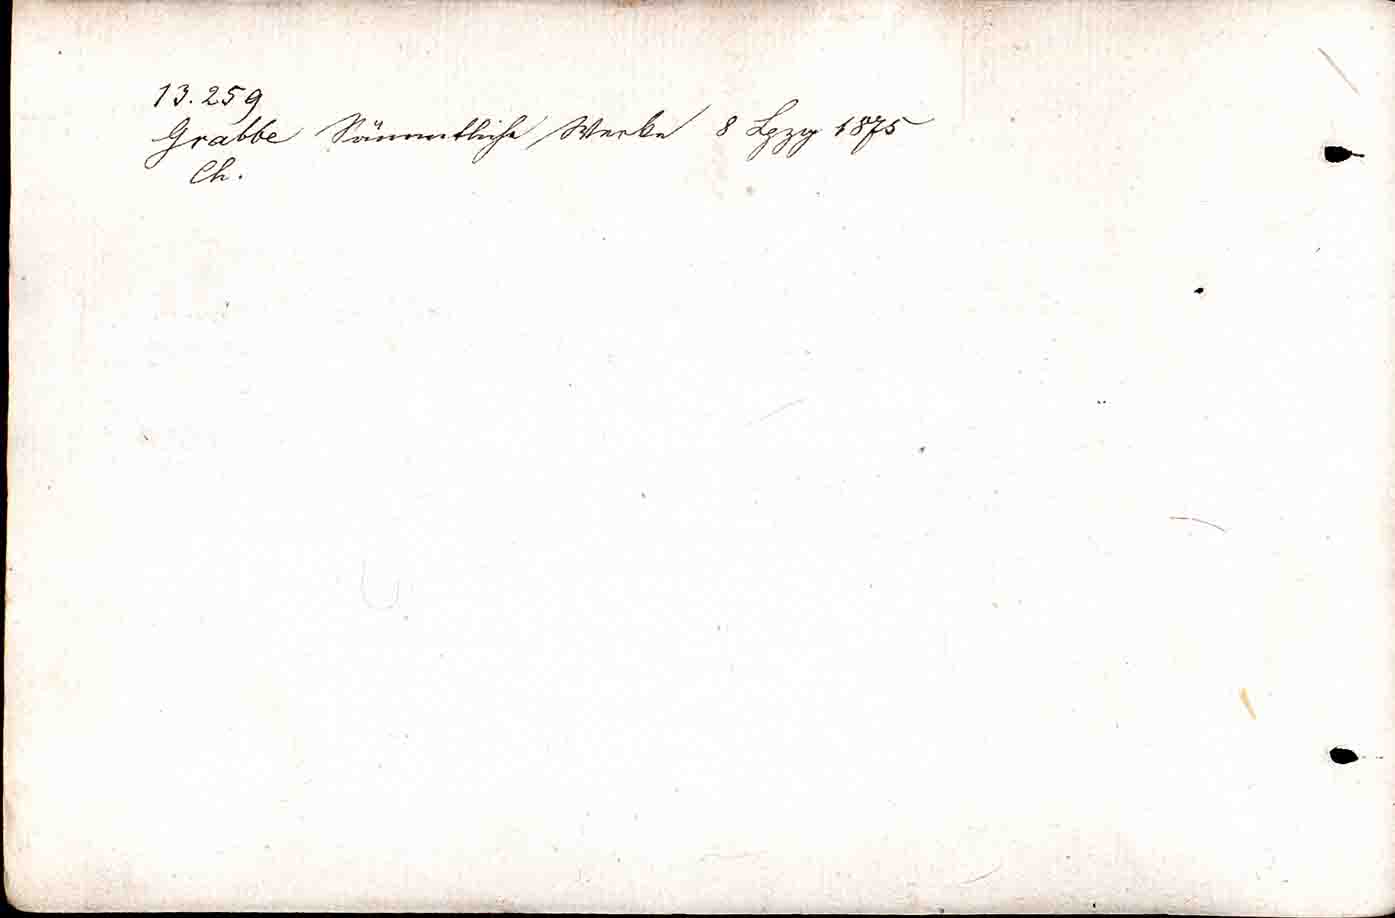 13.259
Grabbe Sämmtliche Werke 8 Lpzg 1875
Ch.